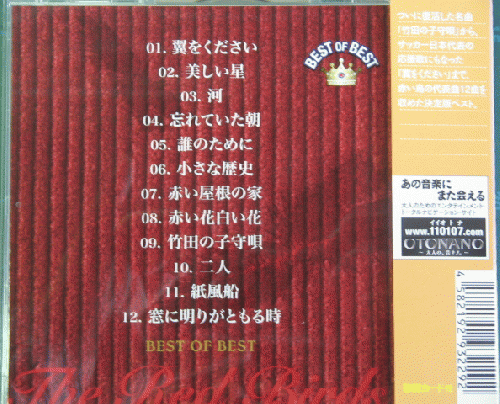 01. 翼をください
02. 美しい星
03. 河
04. 忘れていた朝
05. 誰のために
06. 小さな歴史
07. 赤い屋根の家
08. 赤い花白い花
09. 竹田の子守唄
10. 二人
11. 紙風船
12. 窓に明りがともる時
BEST OF BEST
The Red Birds
BEST OF BEST
ついに復活した名曲
「竹田の子守唄」から、
サッカー日本代表の
応援歌にもなった
「翼をください」まで、
赤い鳥の代表曲12曲を
収めた決定盤ベスト。
あの音楽に
また会える
大人のためのエンタテインメント
イイオトナ
www.110107.com
OTONANO
4 582192 932292